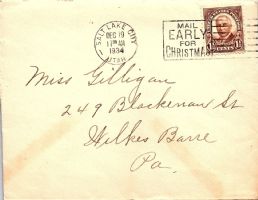 SALT LAKE CITY
DEC 19
11 AM
1934
UTAH
MAIL
EARLY
FOR
CHRISTMAS
CENTS
Miss Gilligan
249 Blackman St
Wilkes Barre
Pa.